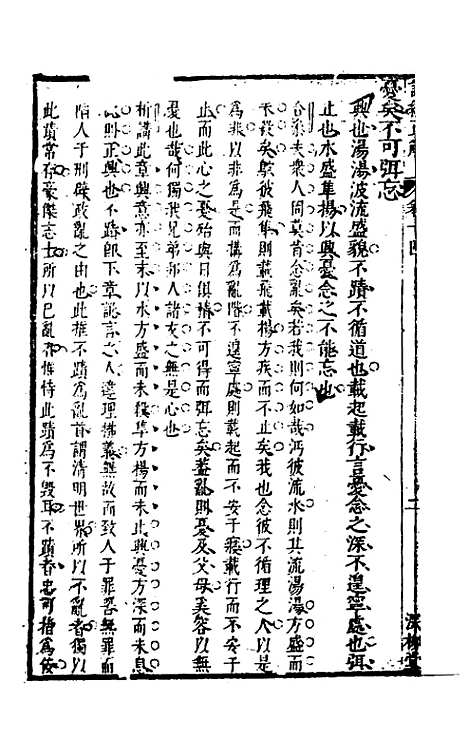 憂矣不可弭忘
興也湯湯波流盛貌不蹟不循道也載起載行言憂念之深不遑寧處也弭
止也水盛隼揚以興憂念之不能忘也
合參夫眾人固莫肯念亂矣若我則何如哉沔彼流水則其流湯湯方盛而
未殺矣鴥彼飛隼則載飛載揚方疾而不止矣我也念彼不循理之人以是
為非以亂為治構為亂階不遑寧處則載起而不安于寢載行而不安于
止而此心之憂殆與日俱積不可得而弭忘矣蓋亂則憂及父母奚容以無
憂也哉何獨我兄弟邦人諸友之無是心也
析講此章興意亦至末以水方盛而未殺隼方楊而未止興憂方深而未息
則正興也不蹟即下章訛言之人違理拂義無故而致人于罪咎無罪而
陷人于刑辟政亂之由也此推不蹟為亂首謂清明世界所以不亂者獨以
此蹟常存豪傑志士所以已亂者惟恃此蹟為不毀耳不蹟者忠可指為佞